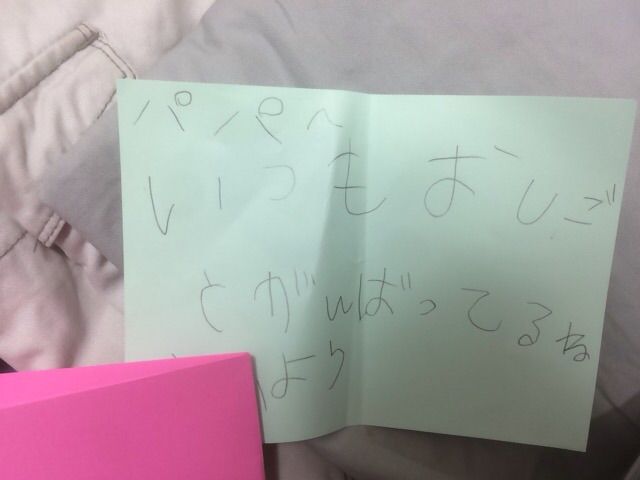 パパへ
いつもおしご
とがんばってるね
より